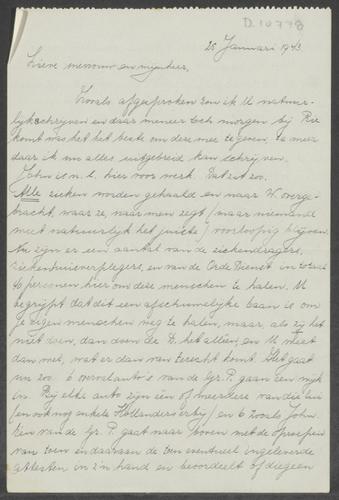 D.10778
25 Januari 1943
Lieve mevrouw en mijnheer,
Zooals afgesproken zou ik U natuur-
lijk schrijven en daar meneer toch morgen bij
komt was het het beste om deze mee te geven, te meer
daar ik nu alles uitgebreid kan schrijven.
John is n.l. hier voor werk. Dat zit zoo.
Alle zieken worden gehaald en naar W. overge-
bracht, waar ze, naar men zegt / maar niemand
weet natuurlijk het juiste / voorloopig blijven.
Nu zijn er een aantal van de ziekendragers,
ziekenhuisverplegers, en van de Orde Dienst in totaal
40 personen hier om deze menschen te halen. U
begrijpt dat dit een afschuwelijke baan is om
je eigen menschen weg te halen, maar, als zij het
niet doen, dan doen de D. het alleen en U weet
dan wel, wat er dan van terecht komt. Het gaat
nu zoo. 6 overvalauto's van de Gr. P. gaan een wijk
in. Bij elke auto zijn één of meerdere van die lui
(en ook nog enkele Hollanders erbij) en 6 zooals John.
Eén van de Gr. P. gaat naar boven met de oproepen
van toen en daaraan de toen eventueel ingeleverde
attesten in z'n hand en beoordeelt of diegeen